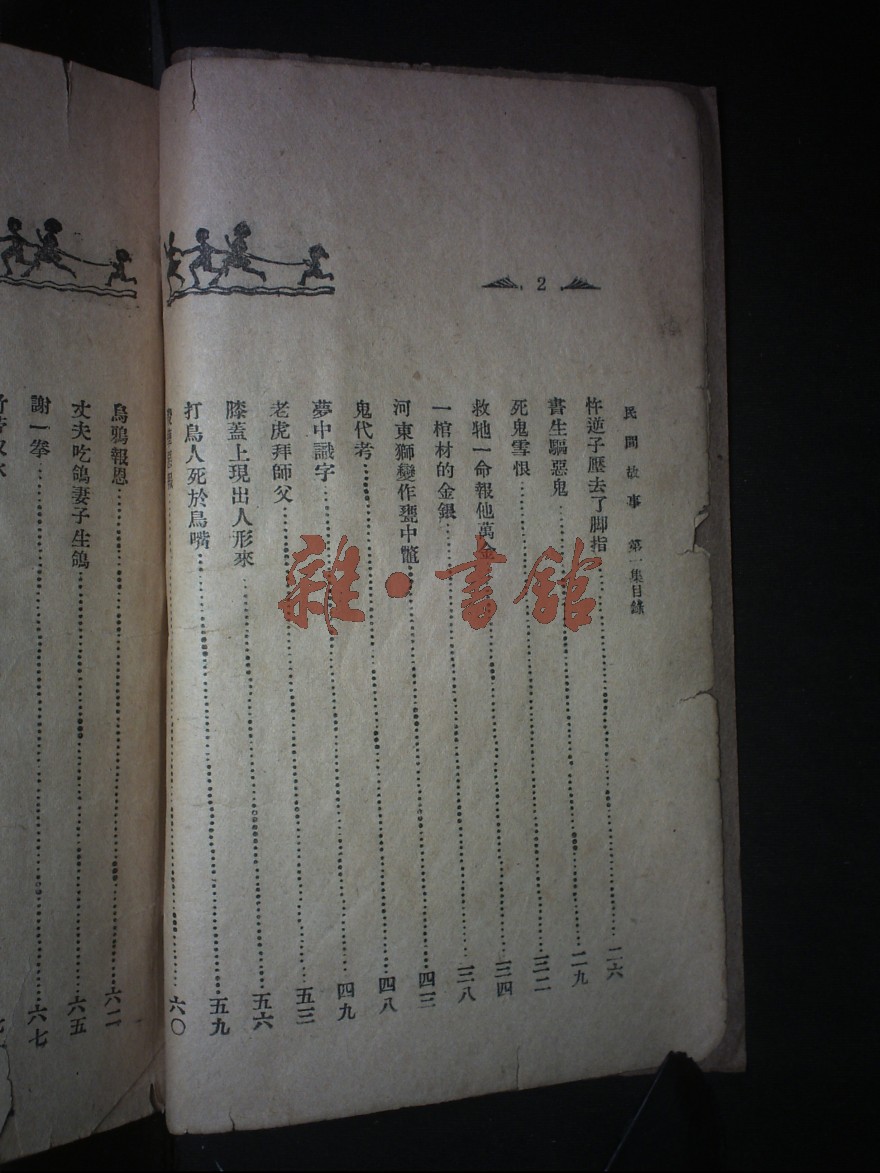 2
民間故事 第一集目錄
忤逆子壓去了脚指 二六
書生驅惡鬼 二九
死鬼雪恨 三二
救牠一命報他萬金 三四
一棺材的金銀 三八
河東獅變作甕中鼈 四三
鬼代考 四八
夢中識字 四九
老虎拜師父 五三
膝蓋上現出人形來 五六
打鳥人死於鳥嘴 五九
六〇
烏鴉報恩 六二
丈夫吃鴿妻子生鴿 六五
謝一拳 六七
雜·書館